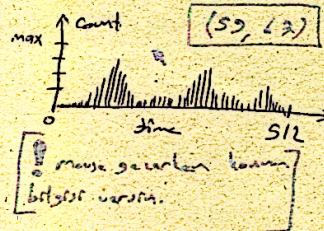 count
(59, 63)
max
0
time
512
! mouse gezerken konum
bilgisi versin.